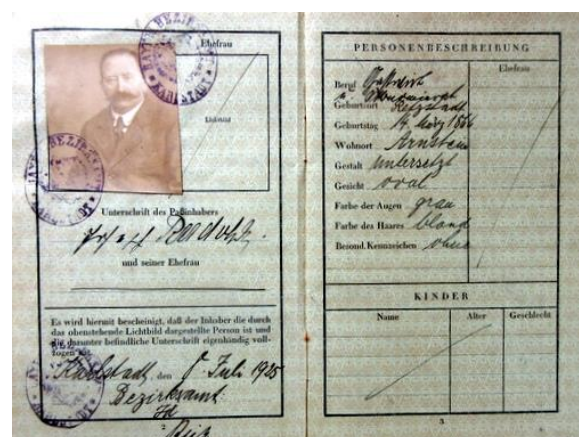 Ehefrau
Lichtbild
BAYER. BEZIRKSAMT
KARLSTADT
Unterschrift des Paßinhabers
Josef
und seiner Ehefrau
Es wird hiermit bescheinigt, daß der Inhaber die durch
das obenstehende Lichtbild dargestellte Person ist und
die darunter befindliche Unterschrift eigenhändig voll-
zogen hat.
Karlstadt, den 8. Juli 1925
Bezirksamt
2
PERSONENBESCHREIBUNG
Ehefrau
Beruf Gastwirt
Geburtsort Retzstadt
Geburtstag 14. März 1866
Wohnort Arnstein
Gestalt untersetzt
Gesicht oval
Farbe der Augen grau
Farbe des Haares blond
Besond. Kennzeichen ohne
KINDER
Name Alter Geschlecht
3